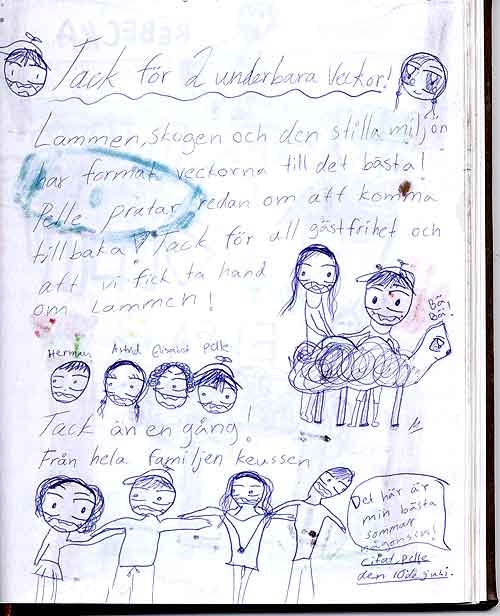 REBECKA
Tack för 2 underbara veckor!
Lammen, skogen och den stilla miljön
har format veckorna till det bästa!
Pelle pratar redan om att komma
tillbaka! Tack för all gästfrihet och
att vi fick ta hand
om Lammen!
Bä!
Bä!
Herman Astrid Elisabet Pelle
Tack än en gång!
Från hela familjen Keussen
Det här är
min bästa
sommar
någonsin!
Citat, Pelle
den 10:de juli.